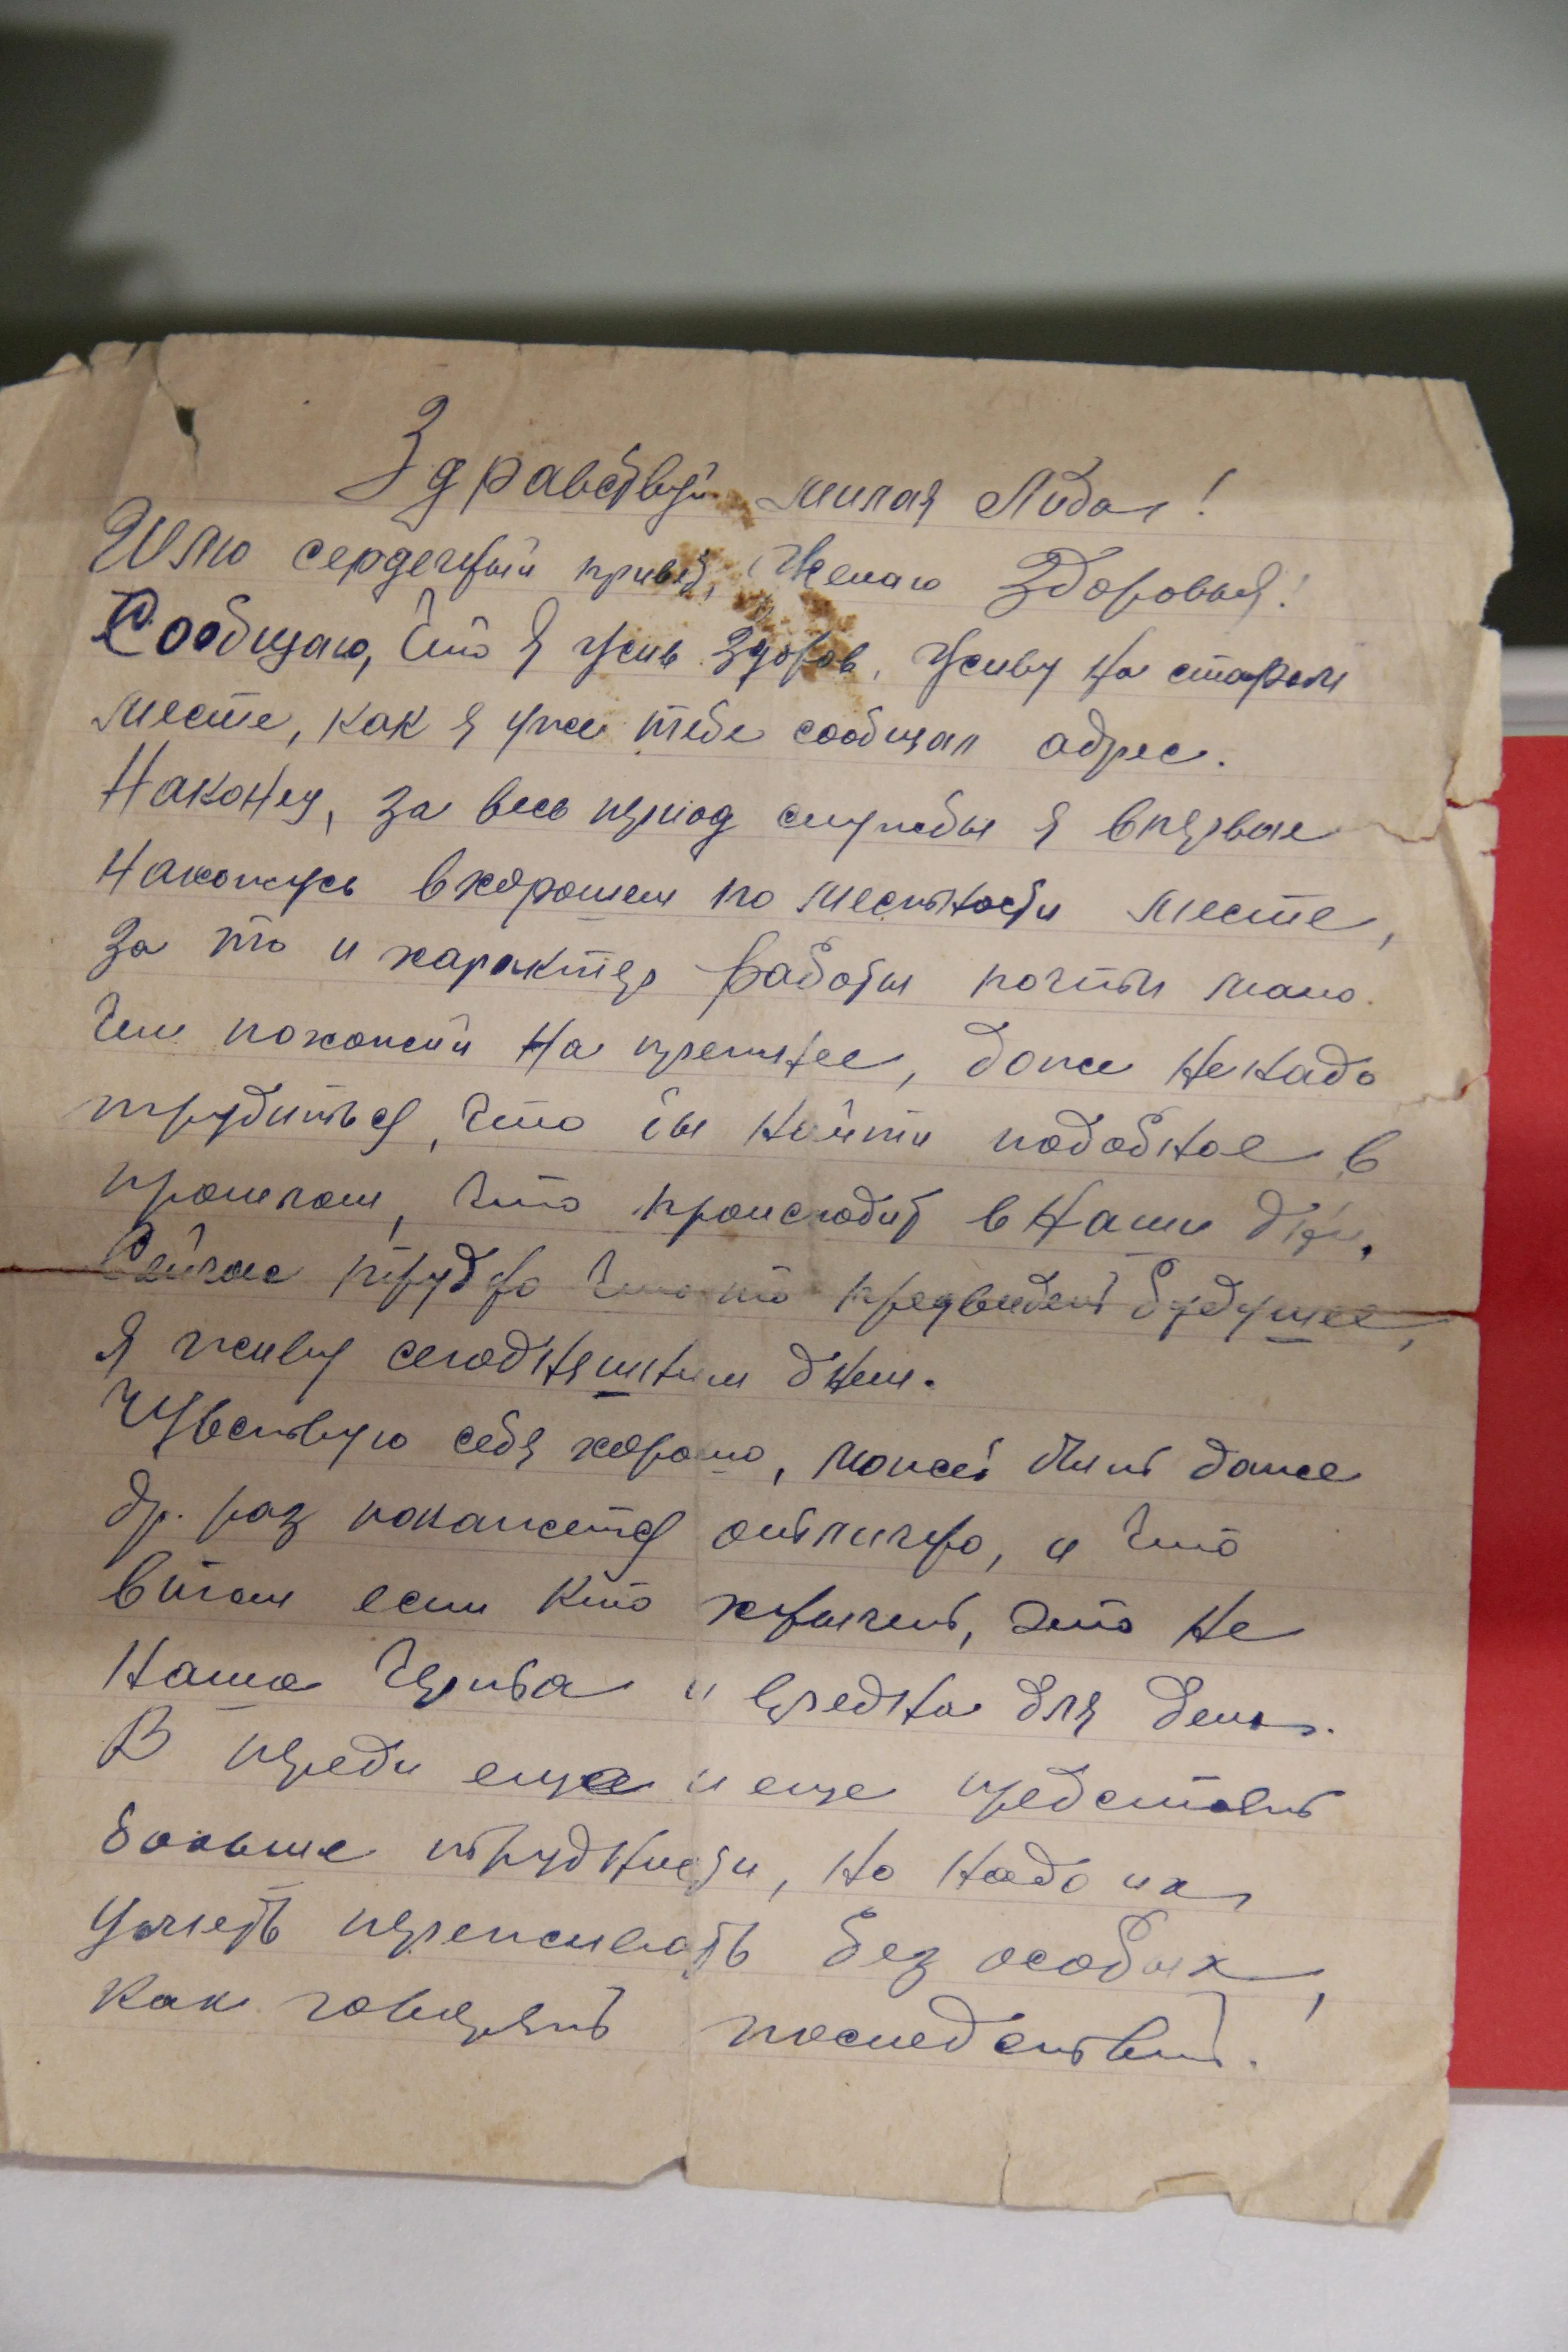 Здравствуй милая Лида!
Шлю сердечный привет, Желаю Здоровья!
Сообщаю, что я жив здоров, живу на старом
месте, как я уже тебе сообщал адрес.
Наконец, за весь период службы я впервые
нахожусь в хорошем по местности месте,
за то и характер работы почти мало
чем похожий на прежнее, даже не надо
трудиться, что бы найти подобное в
прошлом, что происходит в наши дни.
Сейчас трудно что то предвидеть будущее,
я живу сегодняшним днем.
Чувствую себя хорошо, может быть даже
др. раз покажется отлично, и что
в том если кто хнычет, это не
наша черта и вредна для дела.
В переди еще и еще предстоят
больше трудности, но надо их
уметь переживать без особых,
как говорят последствий.